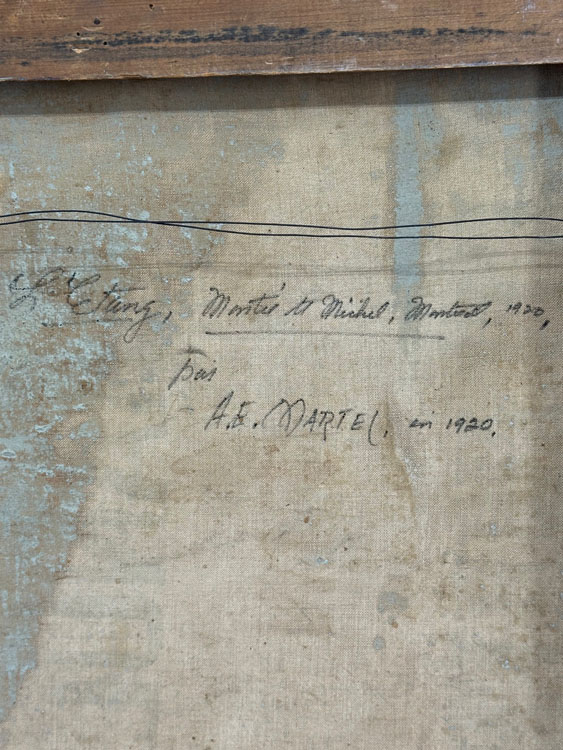 L'Étang, Montée St Michel, Montreal, 1920,
par
A.E. MARTEL, en 1920.